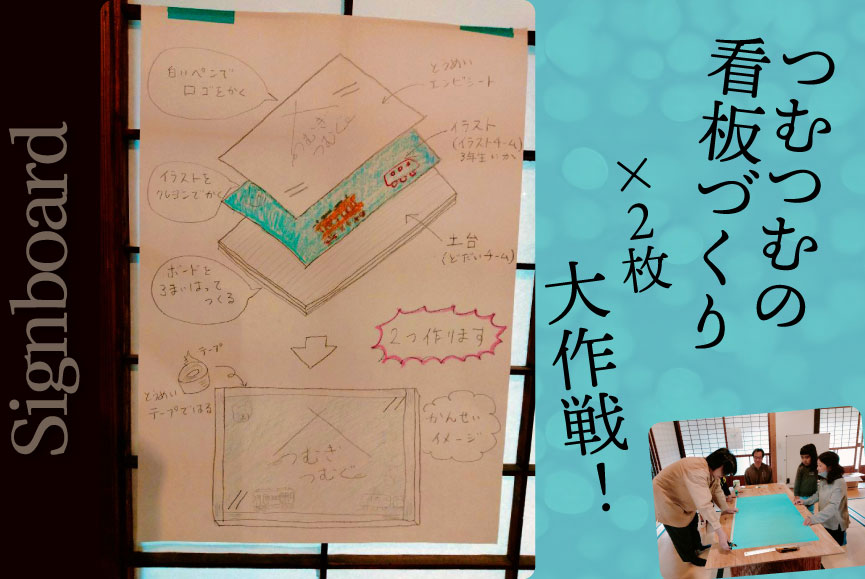 Signboard
つむつむの
看板づくり
×2枚
大作戦!
白いペンで
ロゴをかく
とうめい
エンビシート
つむぎ
つむぐ
イラスト
(イラストチーム)
イラストを
クレヨンでかく
土台
(どだいチーム)
ボンドを
3まいはって
つくる
2つ作ります
テープ
とうめい
テープではる
かんせい
イメージ
つむぎ
つむぐ